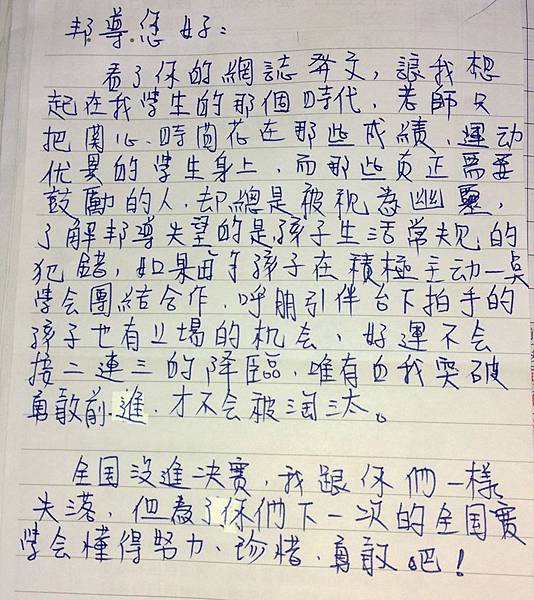 邦導您好：
看了你的網誌發文，讓我想
起在我學生的那個時代，老師只
把関心、時间花在那些成績、運动
优異的學生身上，而那些真正需要
鼓勵的人，却總是被視為幽靈，
了解邦導失望的是孩子生活常規的
犯錯，如果每个孩子在積極主动一点
學会團結合作，呼朋引伴台下拍手的
孩子也有上場的机会，好運不会
接二連三的降臨，唯有自我突破
勇敢前進，才不会被淘汰。
全国沒進決賽，我跟你們一樣
失落，但為了你們下一次的全国賽
學会懂得努力、珍惜、勇敢吧！